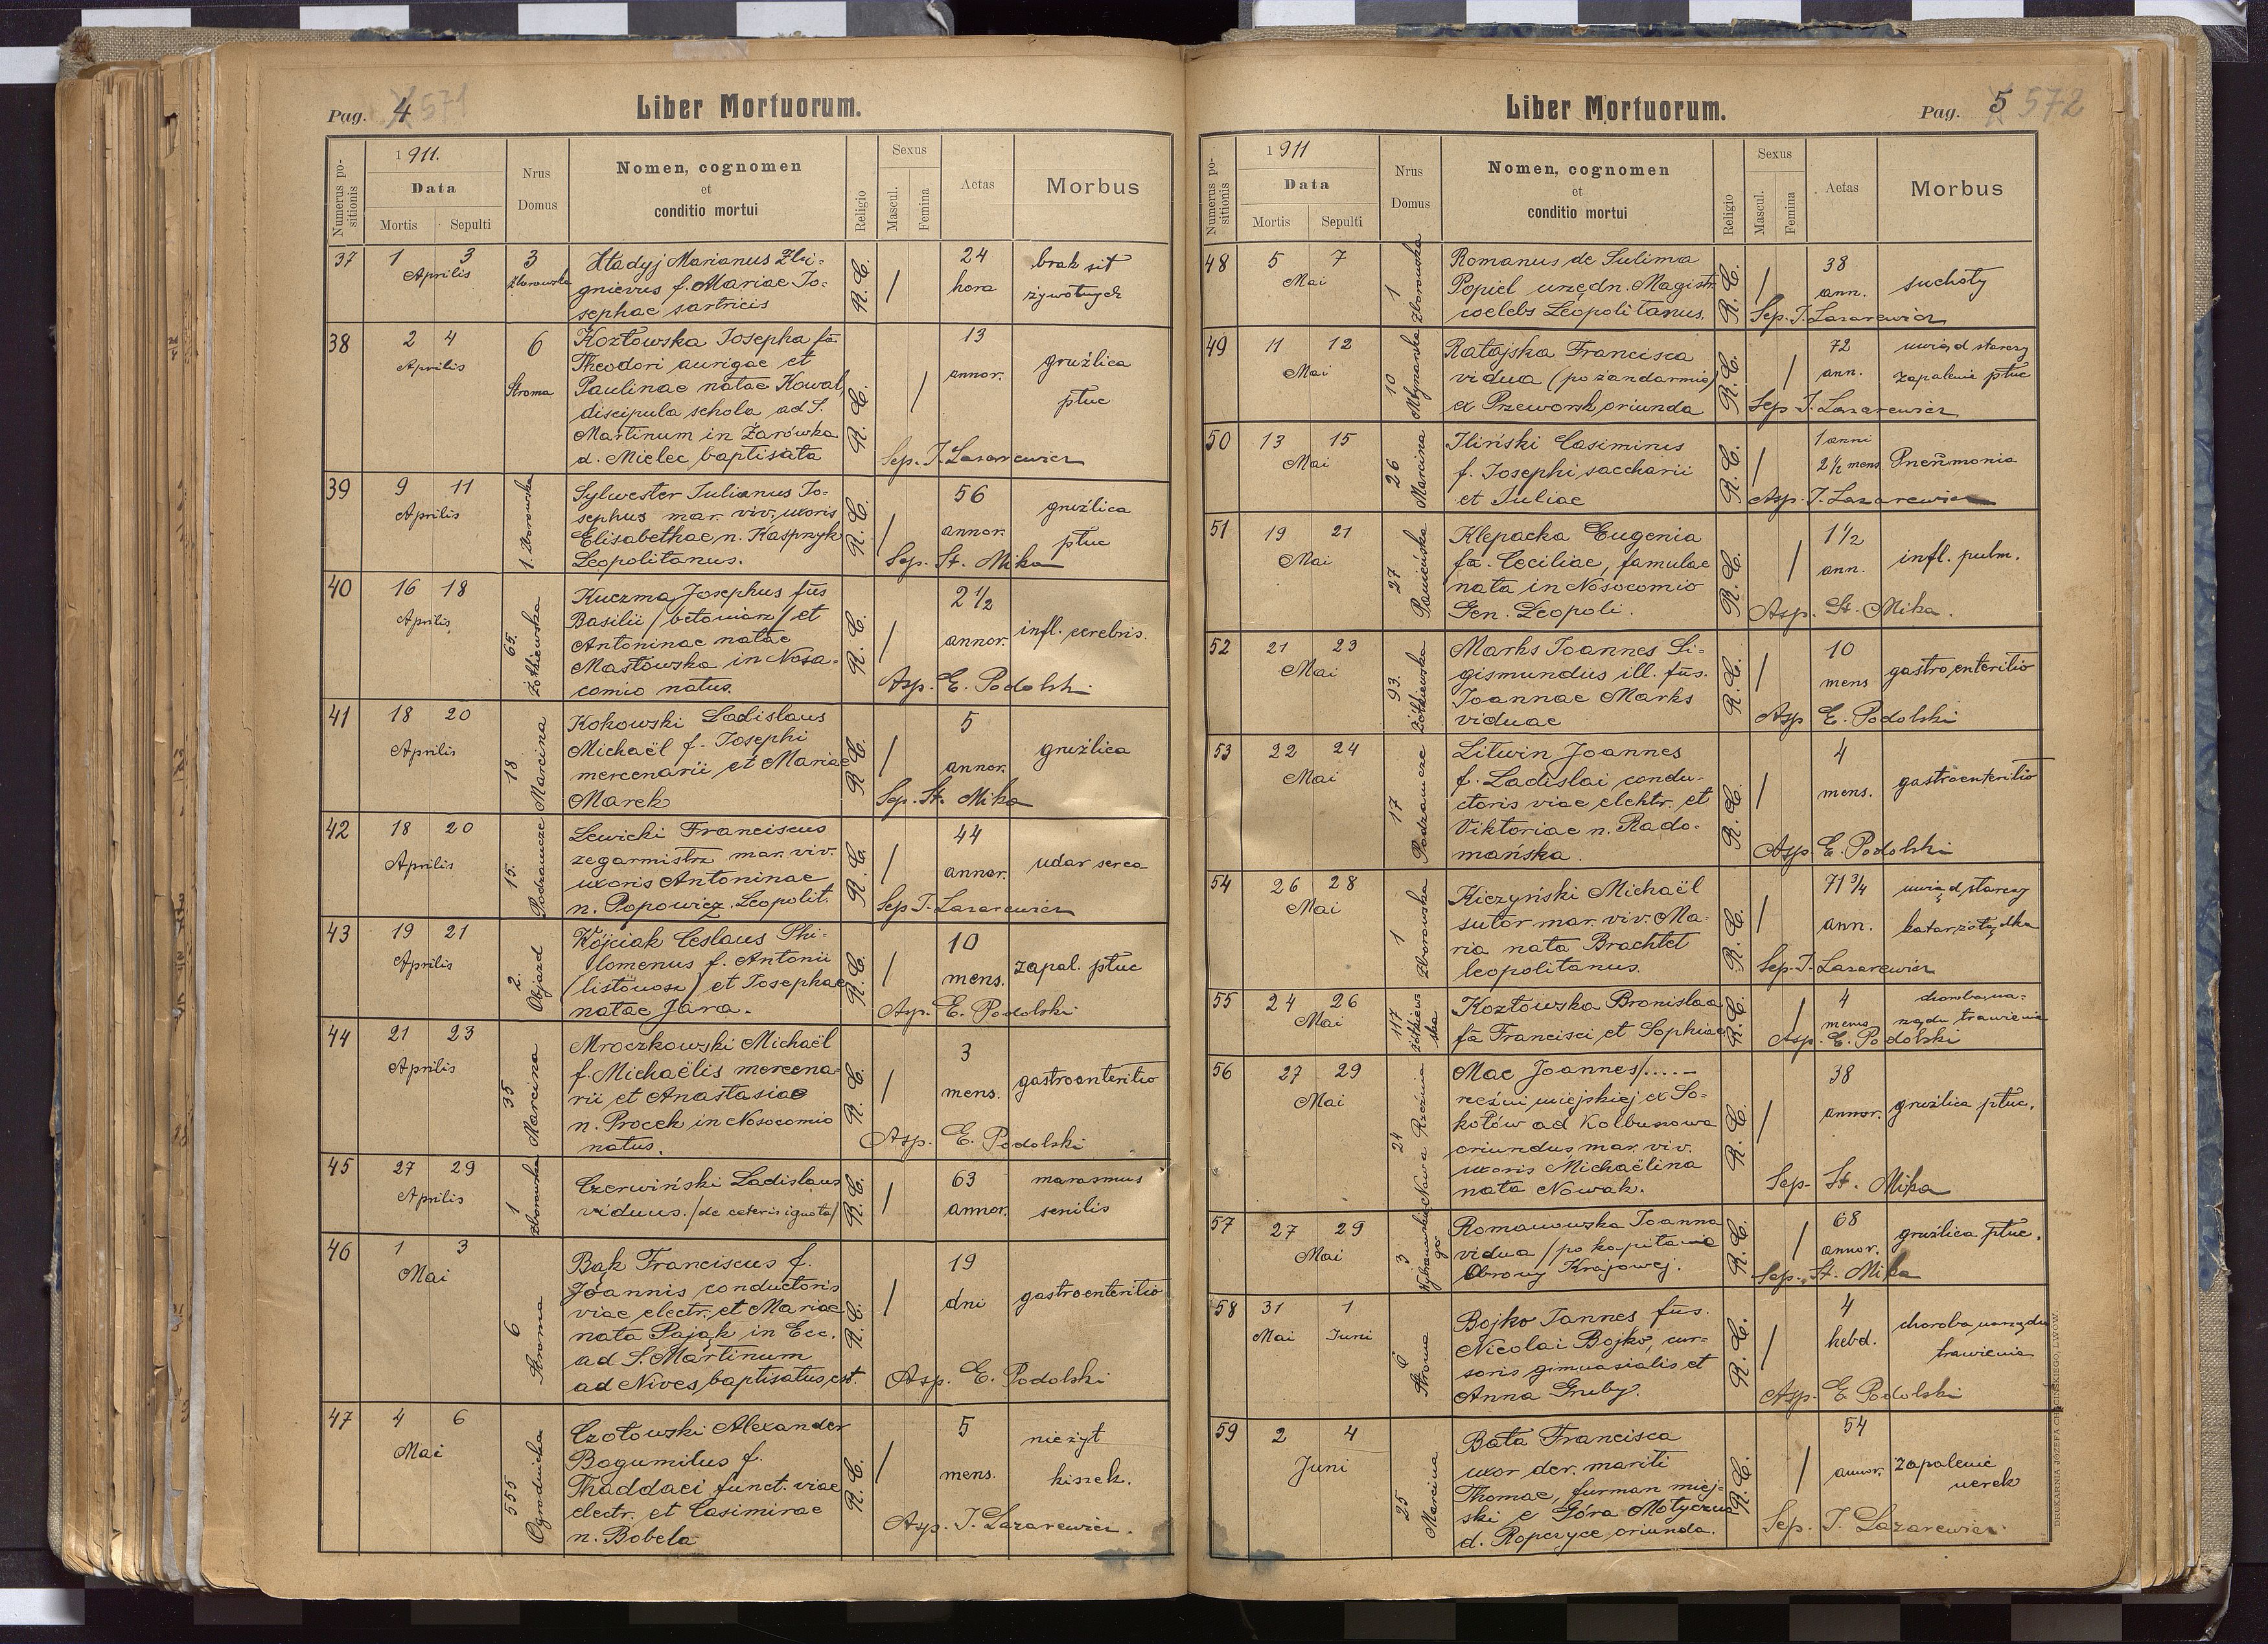 Pag. 4 571
Liber Mortuorum.
Numerus positionis
1911.
Data
Mortis Sepulti
Nrus Domus
Nomen, cognomen
et
conditio mortui
Religio
Sexus
Mascul. Femina
Aetas
Morbus
37 1 3 Aprilis
3 Zborowska
Hładyj Marianus Zbi-
gnievus f. Mariae Jo-
sephae sartricis
R. C. / 24 hora
brak sił
żywotnych
38 2 4 Aprilis
6 Stroma
Kozłowska Josepha fa
Theodori aurigae et
Paulinae natae Kowal,
discipula schola ad S.
Martinum in Żarówka
d. Mielec baptisata
R. C. / 13 annor.
gruźlica
płuc
Sep. J. Lazarewicz
39 9 11 Aprilis
1. Zborowska
Sylwester Julianus Jo-
sephus mar. viv. uxoris
Elisabethae n. Kasprzyk
Leopolitanus.
R. C. / 56 annor.
gruźlica
płuc
Sep. St. Mika
40 16 18 Aprilis
65. Żółkiewska
Kuczma Josephus fus
Basilii /betoniarz/ et
Antoninae natae
Masłowska in Noso-
comio natus.
R. C. / 2 1/2 annor.
infl. cerebris.
Asp. E. Podolski
41 18 20 Aprilis
18 Marcina
Kokowski Ladislaus
Michaël f. Josephi
mercenarii et Mariae
Marek
R. C. / 5 annor.
gruźlica
Sep. St. Mika
42 18 20 Aprilis
15. Podzamcze
Lewicki Franciscus
zegarmistrz mar. viv.
uxoris Antoninae
n. Popowicz. Leopolit.
R. C. / 44 annor.
udar serca
Sep J. Lazarewicz
43 19 21 Aprilis
2. Objazd
Wójciak Ceslaus Phi-
lomenus f. Antonii
(listonosz) et Josephae
natae Jara.
R. C. / 10 mens.
zapal. płuc
Asp. E. Podolski
44 21 23 Aprilis
35 Marcina
Mroczkowski Michaël
f. Michaëlis mercena-
rii et Anastasiae
n. Procek in Nosocomio
natus.
R. C. / 3 mens.
gastroenteritis
Asp. E. Podolski
45 27 29 Aprilis
1 Zborowska
Czerwiński Ladislaus
viduus. /de ceteris ignota/
R. C. / 63 annor.
marasmus
senilis
46 1 3 Mai
6 Stroma
Bąk Franciscus f.
Joannis conductoris
viae electr. et Mariae
nata Pająk in Ecc.
ad S. Martinum
ad Nives baptisatus est.
R. C. / 19 dni
gastroenteritis
Asp. E. Podolski
47 4 6 Mai
555 Ogrodnicka
Czołowski Alexander
Bogumilus f.
Thaddaei funct. viae
electr. et Casimirae
n. Bobela
R. C. / 5 mens.
nieżyt
kiszek.
Asp. J. Lazarewicz.
Liber Mortuorum.
Pag. 5 572
Numerus positionis
1911
Data
Mortis Sepulti
Nrus Domus
Nomen, cognomen
et
conditio mortui
Religio
Sexus
Mascul. Femina
Aetas
Morbus
48 5 7 Mai
1 Zborowska
Romanus de Sulima
Popiel urzędn. Magistr.
coelebs Leopolitanus.
R. C. / 38 ann.
suchoty
Sep. J. Lazarewicz
49 11 12 Mai
10 Młynarska
Ratajska Francisca
vidua (po żandarmie)
ex Przeworsk oriunda
R. C. / 72 ann.
uwiąd starczy
zapalenie płuc
Sep J. Lazarewicz
50 13 15 Mai
26 Marcina
Iliński Casimirus
f. Josephi saccharii
et Juliae
R. C. / 1 anni 2 1/2 mens
Pneumonia
Asp. J. Lazarewicz
51 19 21 Mai
27 Panieńska
Klepacka Eugenia
fa. Ceciliae, famulae
nata in Nosocomio
Gen. Leopoli.
R. C. / 1 1/2 ann.
infl. pulm.
Asp. St. Mika.
52 21 23 Mai
93. Żółkiewska
Marks Joannes Si-
gismundus ill. fus.
Joannae Marks
viduae
R. C. / 10 mens
gastroenteritis
Asp E. Podolski
53 22 24 Mai
17 Podzamcze
Litwin Joannes
f. Ladislai condu-
ctoris viae elektr. et
Viktoriae n. Rado-
mańska.
R. C. / 4 mens.
gastroenteritis
Asp E. Podolski
54 26 28 Mai
1 Zborowska
Kiczyński Michaël
sutor mar. viv. Ma-
ria nata Brachtet
leopolitanus.
R. C. / 71 3/4 ann.
uwiąd starczy
katar żołądka
Sep. J. Lazarewicz
55 24 26 Mai
117 Żółkiewska
Kozłowska Bronislaa
fa Francisci et Sophiae
R. C. / 4 mens
choroba na-
rządu trawienia
Asp. E. Podolski
56 27 29 Mai
24 Nowa Rzeźnia
Mac Joannes/.....-
rzeźni miejskiej ex So-
kołów ad Kolbuszowa
oriundus mar. viv.
uxoris Michaëlina
nata Nowak.
R. C. / 38 annor.
gruźlica płuc.
Sep. St. Mika
57 27 29 Mai
3 Wybranowskiego
Romanowska Joanna
vidua /po kapitanie
Obrony Krajowej.
R. C. / 68 annor.
gruźlica płuc.
Sep. St. Mika
58 31 Mai 1 Juni
6 Stroma
Bojko Joannes fus.
Nicolai Bojko, cur-
soris gimnasialis et
Anna Gruby.
R. C. / 4 hebd.
choroba narządu
trawienia
Asp. E. Podolski
59 2 4 Juni
25 Marcina
Bata Francisca
uxor der. mariti
Thomae, furman miej-
ski e Góra Motyczna
d. Ropczyce oriunda.
R. C. / 54 annor.
zapalenie
nerek
Sep. J. Lazarewicz
DRUKARNIA JÓZEFA CHĘCIŃSKIEGO, LWÓW.